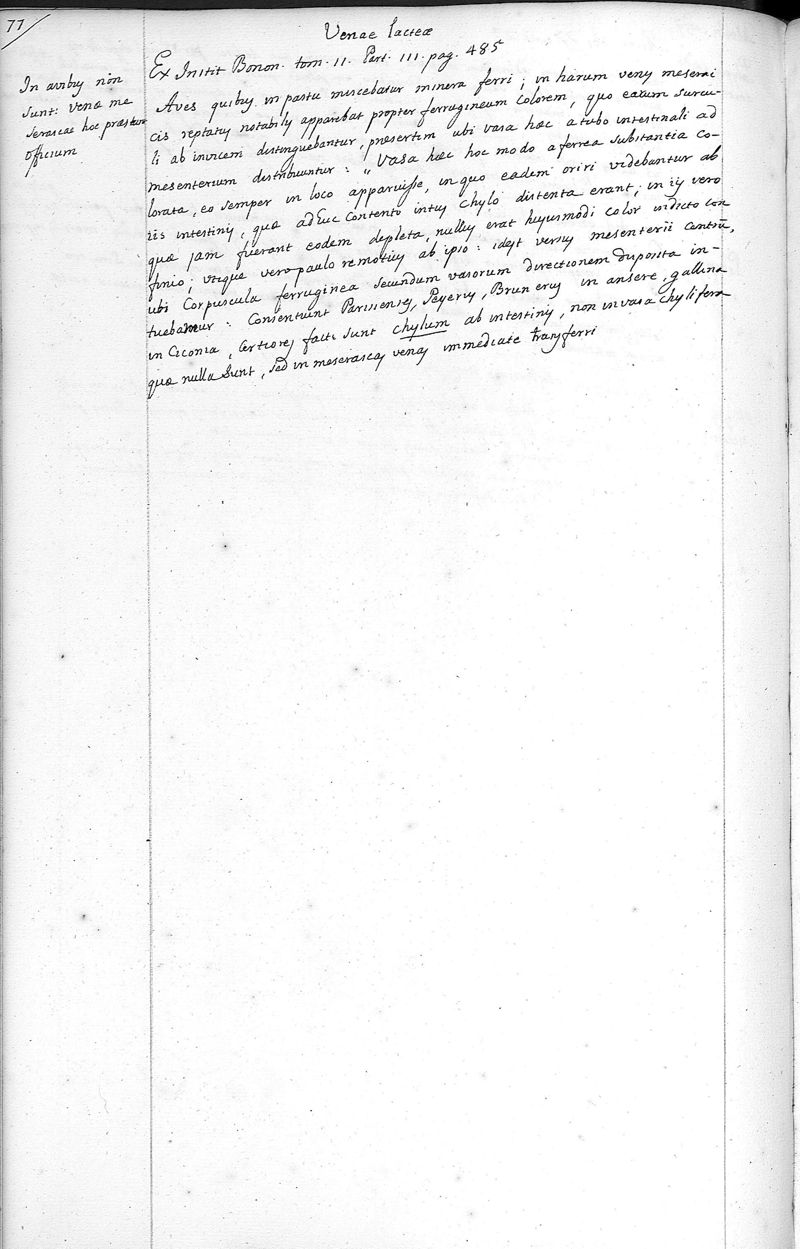 77
Venae lacteæ
In avibus non
sunt: venæ me
seraicae hoc præstant
officium
Ex Instit Bonon. tom. II. Part. III. pag. 485
Aves quibus in pastu miscebatur minera ferri; in harum venis mesarai
cis reptatus notabilis apparebat propter ferrugineum colorem, quo earum surcu-
li ab invicem distinguebantur, præsertim ubi vasa hæc a tubo intestinali ad
mesenterium distribuuntur: "Vasa hæc hoc modo a ferrea substantia co-
lorata, eo semper in loco apparuisse, in quo eadem oriri videbantur ab
iis intestinis, quæ adhuc contento intus chylo distenta erant; in iis vero
quæ jam fuerant eodem depleta, nullus erat hujusmodi color in dicto con
finio; utique vero paulo remotius ab ipso: idest versus mesenterii centrū,
ubi corpuscula ferruginea secundum vasorum directionem disposita in-
tuebamur: Consentiunt Parisienses, Peyerus, Brunerus in ansere, gallina
in Ciconia, certiores facti sunt chylum ab intestinis, non in vasa chylifera
quæ nulla sunt, sed in meseraicas venas immediate transferri